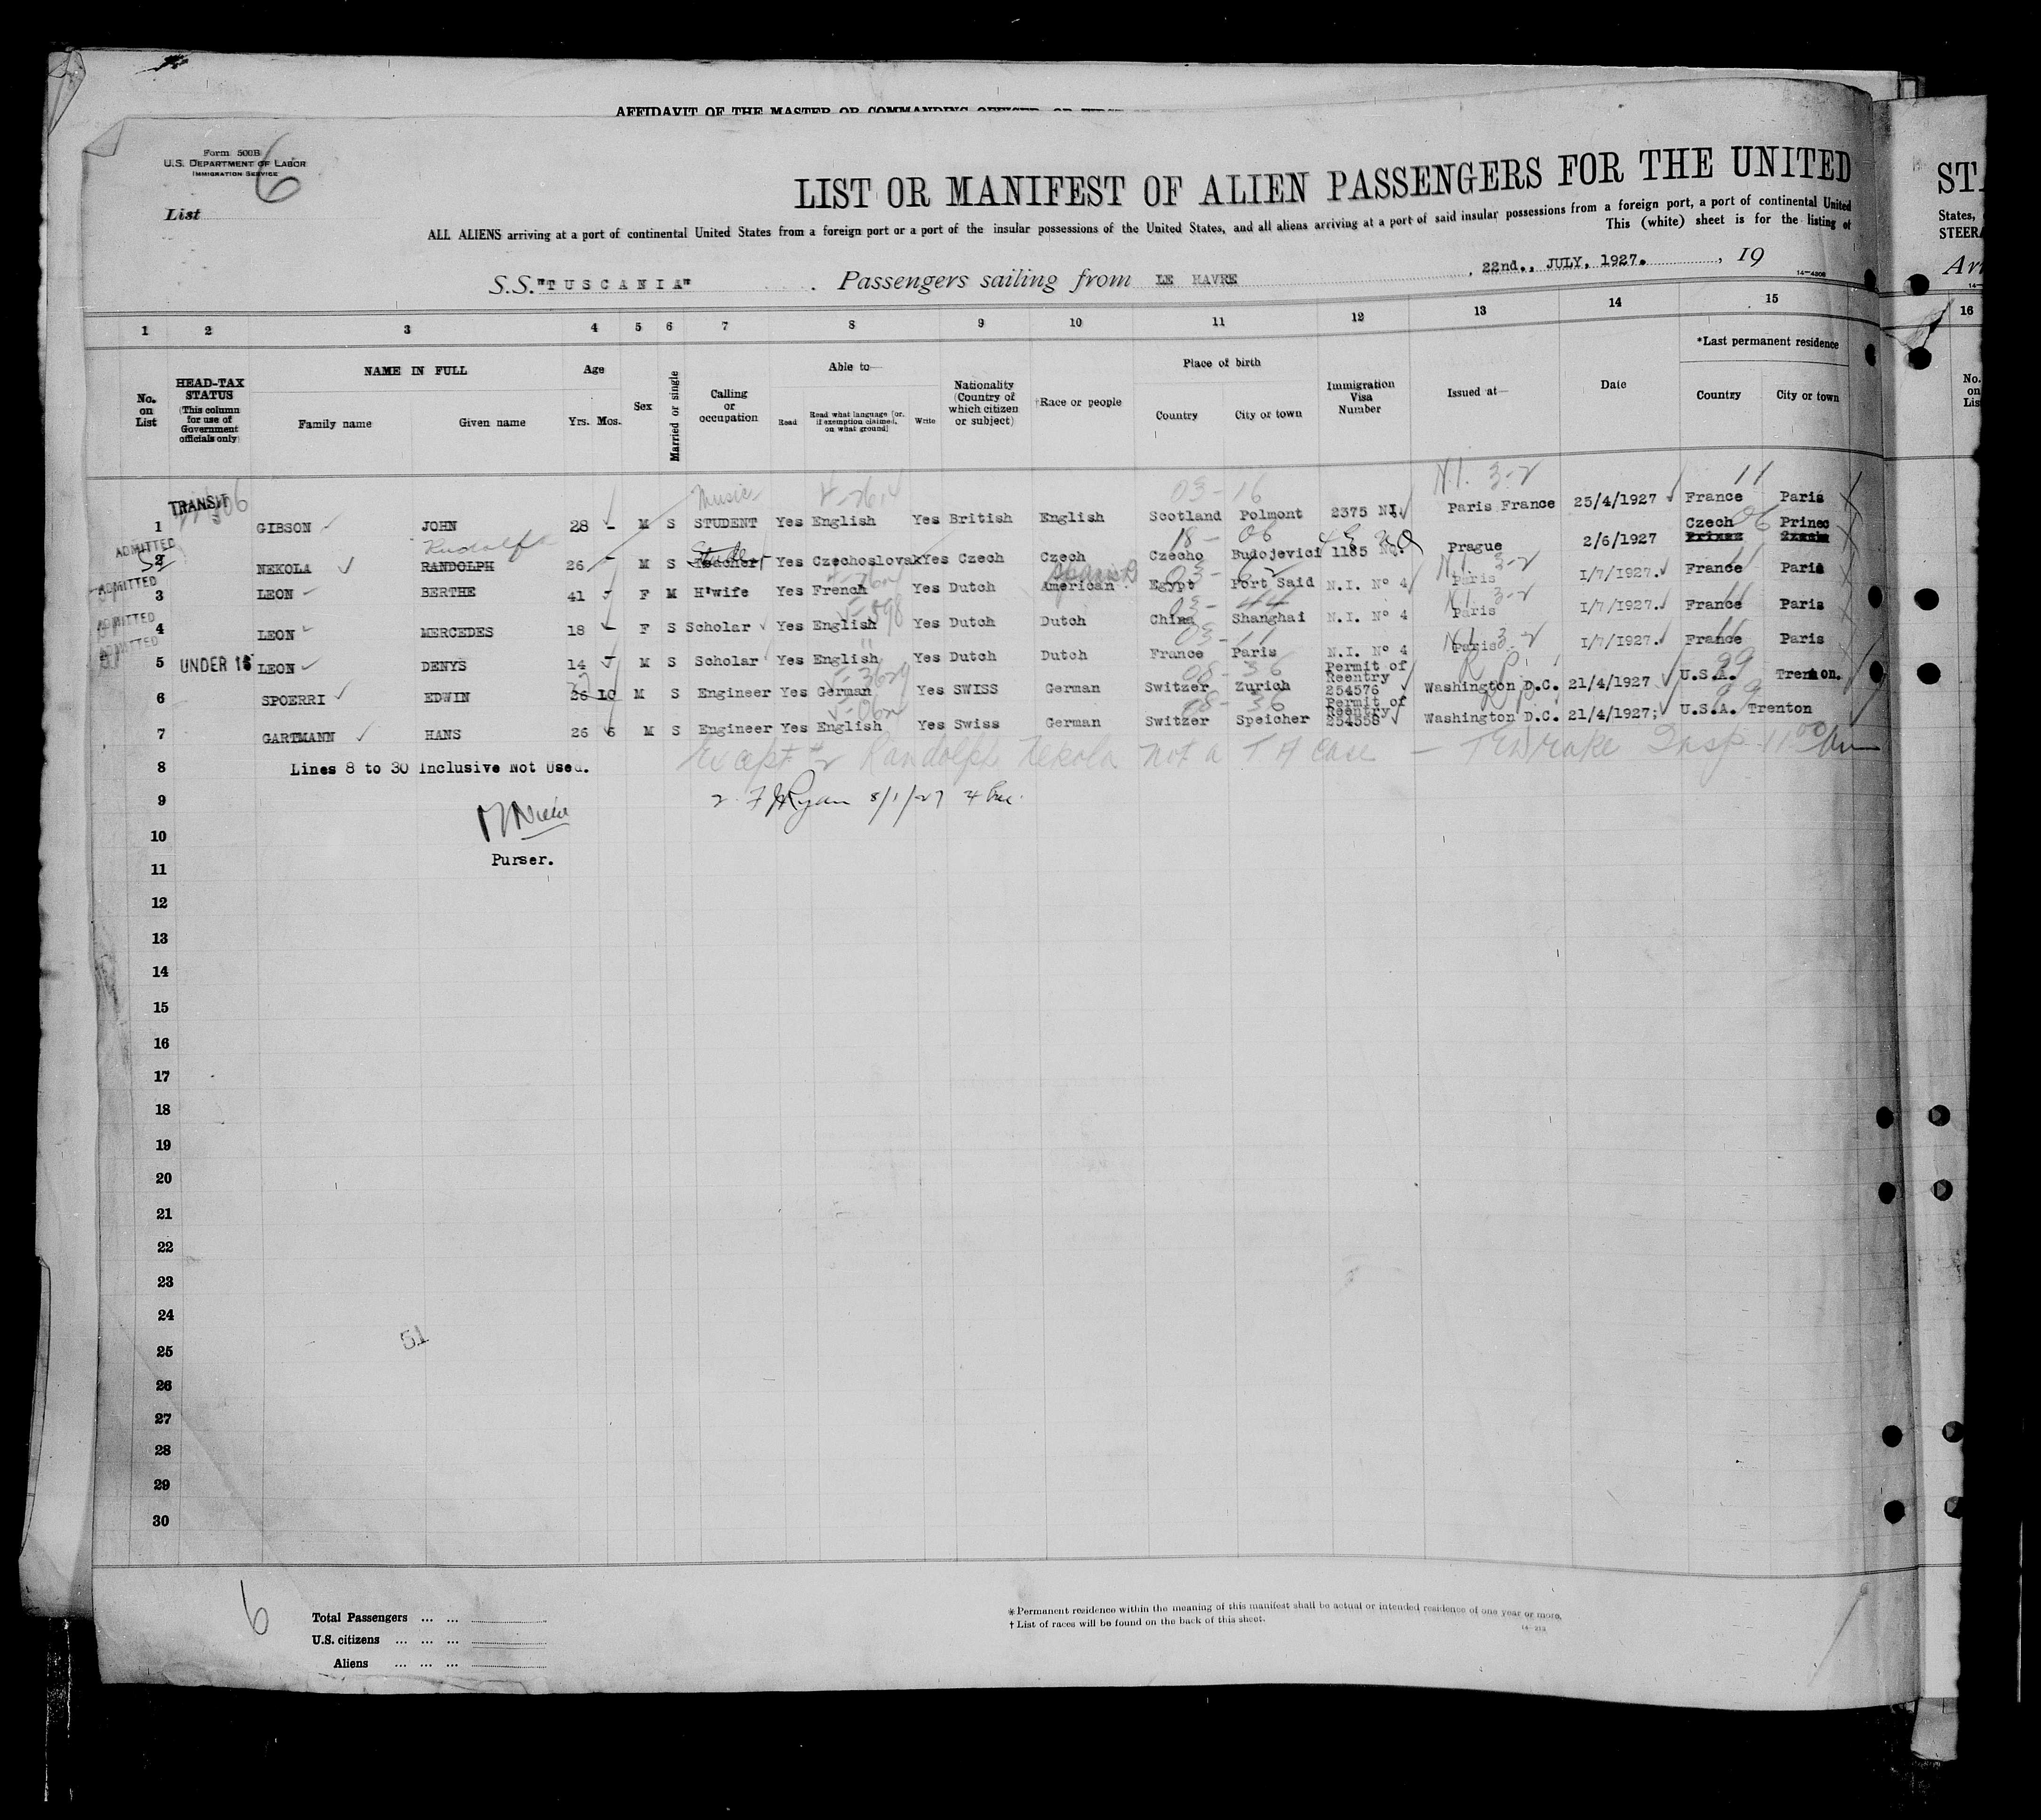 AFFIDAVIT OF THE MASTER OR COMMANDING OFFICER, OR FIRST
Form 500B
U.S. DEPARTMENT OF LABOR
IMMIGRATION SERVICE
6
List
LIST OR MANIFEST OF ALIEN PASSENGERS FOR THE UNITED
ALL ALIENS arriving at a port of continental United States from a foreign port or a port of the insular possessions of the United States, and all aliens arriving at a port of said insular possessions from a foreign port, a port of continental United
This (white) sheet is for the listing of
S.S. "TUSCANIA" Passengers sailing from LE HAVRE, 22nd., JULY, 1927., 19
14-4308
1 2 3 4 5 6 7 8 9 10 11 12 13 14 15
No. on List
HEAD-TAX STATUS (This column for use of Government officials only)
NAME IN FULL
Family name Given name
Age
Yrs. Mos.
Sex
Married or single
Calling or occupation
Able to—
Read Read what language [or, if exemption claimed, on what ground] Write
Nationality (Country of which citizen or subject)
†Race or people
Place of birth
Country City or town
Immigration Visa Number
Issued at—
Date
*Last permanent residence
Country City or town
TRANSIT
Music 03-16 N.I. 3-2 11
1 GIBSON JOHN 28 - M S STUDENT Yes English Yes British English Scotland Polmont 2375 NI. Paris France 25/4/1927 France Paris
ADMITTED Rudolf 18- 06 Czech 06 Princ
2 NEKOLA RANDOLPH 26 - M S Teacher Yes Czechoslovak Yes Czech Czech Czecho Budojevici 1185 NQ. Prague 2/6/1927
ADMITTED Spanish N.I. 3-2
3 LEON BERTHE 41 - F M H'wife Yes French Yes Dutch American Egypt Port Said N.I. Nº 4 Paris 1/7/1927. France Paris
ADMITTED 03-44 N.I. 3-2
4 LEON MERCEDES 18 - F S Scholar Yes English Yes Dutch Dutch China Shanghai N.I. Nº 4 Paris 1/7/1927. France Paris
ADMITTED 03-11 N.I. 3-2
5 UNDER 16 LEON DENYS 14 - M S Scholar Yes English Yes Dutch Dutch France Paris N.I. Nº 4 Paris. 1/7/1927. France Paris
08-36 R.P. 99
6 SPOERRI EDWIN 26 10 M S Engineer Yes German Yes SWISS German Switzer Zurich Permit of Reentry 254576 Washington D.C. 21/4/1927 U.S.A. Trenton.
08-36 R.P. 99
7 GARTMANN HANS 26 6 M S Engineer Yes English Yes Swiss German Switzer Speicher Permit of Reentry 254558 Washington D.C. 21/4/1927; U.S.A. Trenton
Except # 2 Randolph Nekola not a T A Case — TE Drake Insp 11 00 Am
8 Lines 8 to 30 Inclusive Not Used.
9 2. F J Ryan 8/1/27
10
Purser.
11
12
13
14
15
16
17
18
19
20
21
22
23
24
51
25
26
27
28
29
30
6
Total Passengers ... ...
U.S. citizens ... ... ...
Aliens ... ... ...
* Permanent residence within the meaning of this manifest shall be actual or intended residence of one year or more.
† List of races will be found on the back of this sheet.
14-213
STA
States,
STEERA
Arr
16
No. on Lis